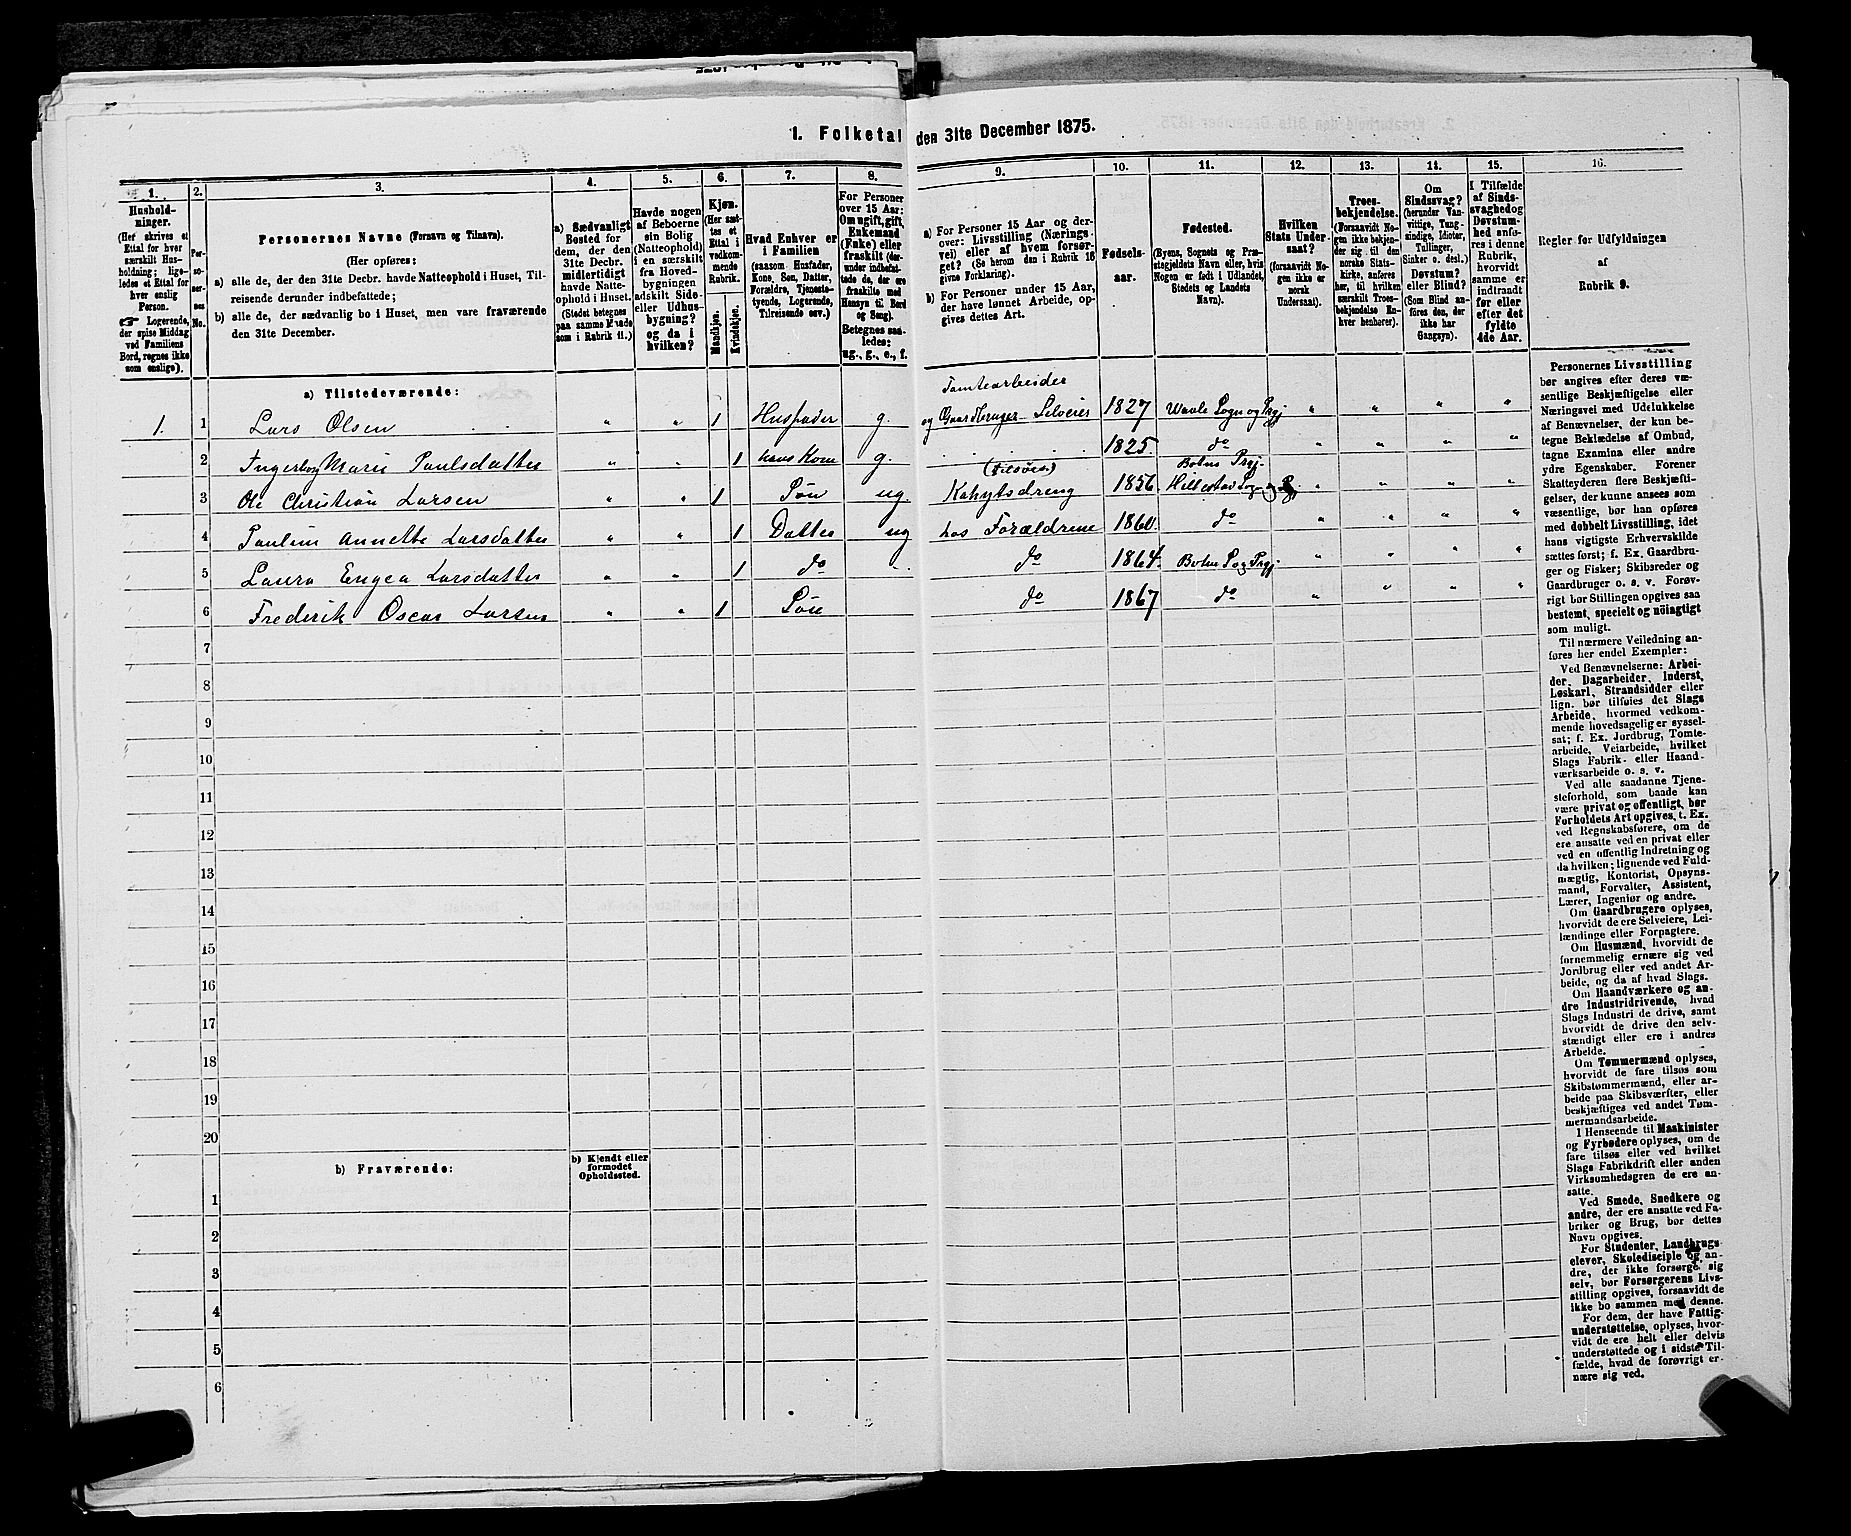 1. Folketal den 31te December 1875.
1. 2. 3. 4. 5. 6. 7. 8. 9. 10. 11. 12. 13. 14. 15. 16.
Hushold-
ninger.
(Her skrives et
Ettal for hver
særskilt Hus-
holdning; lige-
ledes et Ettal for
hver enslig
Person.
☞ Logerende,
der spise Middag
ved Familiens
Bord, regnes ikke
som enslige).
Per-
so-
ner-
nes
No.
Personernes Navne (Fornavn og Tilnavn).
(Her opføres:
a) alle de, der den 31te Decbr. havde Natteophold i Huset, Til-
reisende derunder indbefattede;
b) alle de, der sædvanlig bo i Huset, men vare fraværende
den 31te December.
a) Sædvanligt
Bosted for
dem, der den
31te Decbr.
midlertidigt
havde Natte-
ophold i Huset.
(Stedet betegnes
paa samme Maade
som i Rubrik 11.)
Havde nogen
af Beboerne
sin Bolig
(Natteophold)
i en særskilt
fra Hoved-
bygningen
adskilt Side-
eller Udhus-
bygning?
og da i
hvilken?
Kjøn.
(Her sæt-
tes et
Ettal i
vedkom-
mende
Rubrik.
Mandkjøn.
Kvindekjøn.
Hvad Enhver er
i Familien
(saasom Husfader,
Kone, Søn, Datter,
Forældre, Tjeneste-
tyende, Logerende,
Tilreisende osv.)
For Personer
over 15 Aar:
Om ugift, gift,
Enkemand
(Enke) eller
fraskilt (der-
under indbefat-
tede de, der ere
fraskilte med
Hensyn til Bord
og Seng).
Betegnes saa-
ledes:
ug., g., e., f.
a) For Personer 15 Aar og der-
over: Livsstilling (Nærings-
vei) eller af hvem forsør-
get? (Se herom den i Rubrik 16
givne Forklaring).
b) For Personer under 15 Aar,
der have lønnet Arbeide, op-
gives dettes Art.
Fødsels-
aar.
Fødested.
(Byens, Sognets og Præ-
stegjeldets Navn eller, hvis
Nogen er født i Udlandet,
Stedets og Landets
Navn).
Hvilken
Stats Under-
saat?
(forsaavidt No-
gen ikke er
norsk
Undersaat).
Troes-
bekjendelse.
(Forsaavidt No-
gen ikke bekjen-
der sig til den
norske Stats-
kirke, anføres
her, til hvilken
særskilt Troes-
bekjendelse En-
hver henhører).
Om
Sindssvag?
(herunder Van-
vittige, Tung-
sindige, Idioter,
Tullinger,
Sinker o. desl.)
Døvstum?
eller Blind?
(Som Blind an-
føres den, der
ikke har
Gangsyn).
I Tilfælde
af Sinds-
svaghed og
Døvstum-
hed anfø-
res i denne
Rubrik,
hvorvidt
samme er
indtraadt
før eller
efter det
fyldte
4de Aar.
Regler for Udfyldningen
af
Rubrik 9.
a) Tilstedeværende:
Tomtearbeider
1. 1 Lars Olsen " " 1 Husfader g. og Gaardbruger Selveier 1827 Waale Sogn og Prgj " " " "
2 Ingerborg Marie Paulsdatter " " 1 hans Kone g. 1825. do " " " "
(tilsøes) Botne Prgj.
3 Ole Christian Larsen " " 1 Søn ug Kahytsdreng 1856. Hillestad Sogn " " " "
4 Pauline Annette Larsdatter " " 1 Datter ug hos Forældrene 1860. do " " " "
5 Laura Engea Larsdatter " " 1 do do 1864. Botne S og Prgj. " " " "
6 Frederik Oscar Larsen " " 1 Søn do 1867 do " " " "
7
8
9
10
11
12
13
14
15
16
17
18
19
20
b) Fraværende:
b) Kjendt eller
formodet
Opholdssted.
1
2
3
4
5
6
Personernes Livsstilling
bør angives efter deres væ-
sentlige Beskjæftigelse eller
Næringsvei med Udelukkelse
af Benævnelser, der kun be-
tegne Beklædelse af Ombud,
tagne Examina eller andre
ydre Egenskaber. Forener
Skatteyderen flere Beskjæfti-
gelser, der kunne ansees som
væsentlige, bør han opføres
med dobbelt Livsstilling, idet
hans vigtigste Erhvervskilde
sættes først; f. Ex. Gaardbru-
ger og Fisker; Skibsreder og
Gaardbruger o. s. v. Forøv-
rigt bør Stillingen opgives saa
bestemt, specielt og nöiagtigt
som muligt.
Til nærmere Veiledning an-
føres her endel Exempler:
Ved Benævnelserne: Arbei-
der, Dagarbeider, Inderst,
Løskarl, Strandsidder eller
lign. bør tilføies det Slags
Arbeide, hvormed vedkom-
mende hovedsagelig er syssel-
sat; f. Ex. Jordbrug, Tomte-
arbeide, Veiarbeide, hvilket
Slags Fabrik- eller Haand-
værksarbeide o. s. v.
Ved alle saadanne Tjene-
steforhold, som baade kan
være privat og offentligt, bør
Forholdets Art opgives, t. Ex.
ved Regnskabsførere, om de
ere ansatte ved en privat eller
ved en offentlig Indretning og
da hvilken; lignende ved Fuld-
mægtig, Kontorist, Opsyns-
mand, Forvalter, Assistent,
Lærer, Ingeniør og andre.
Om Gaardbrugere oplyses,
hvorvidt de ere Selveiere, Lei-
lændinge eller Forpagtere.
Om Husmænd, hvorvidt de
fornemmelig ernære sig ved
Jordbrug eller ved andet Ar-
beide, og da af hvad Slags.
Om Haandværkere og an-
dre Industridrivende, hvad
Slags Industri de drive, samt
hvorvidt de drive den selv-
stændigt eller ere i andres
Arbeide.
Om Tømmermænd oplyses,
hvorvidt de fare tilsøs som
Skibstømmermænd, eller ar-
beide paa Skibsværfter, eller
beskjæftiges ved andet Tøm-
mermandsarbeide.
I Henseende til Maskinister
og Fyrbødere oplyses, om de
fare tilsøs eller ved hvilket
Slags Fabrikdrift eller anden
Virksomhedsgren de ere an-
satte.
Ved Smede, Snedkere og
andre, der ere ansatte ved Fa-
briker og Brug, bør dettes
Navn opgives.
For Studenter, Landbrugs-
elever, Skoledisciple og an-
dre, der ikke forsørge sig
selv, bør Forsørgerens Livs-
stilling opgives, forsaavidt de
ikke bo sammen med denne.
For dem, der have Fattig-
understøttelse, oplyses, hvor-
vidt de ere helt eller delvis
understøttede og i sidste Til-
fælde, hvad de forøvrigt er-
nære sig ved.